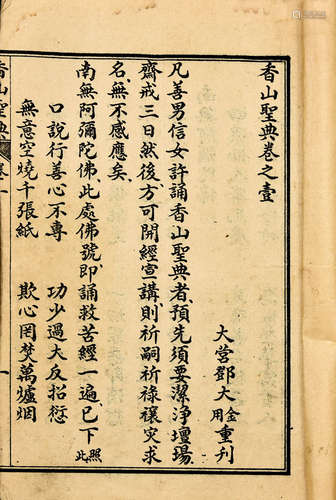 香山聖典卷之壹
大營鄧大金用重刋
凡善男信女許誦香山聖典者預先須要潔浄壇場
齋戒三日然後方可開經宣講則祈嗣祈祿禳灾求
名無不感應矣
南無阿彌陀佛此處佛號即誦救苦經一遍已下照此
口說行善心不專　功少過大反招愆
無意空燒千張紙　欺心罔焚萬爐烟
香山聖典　卷一　一